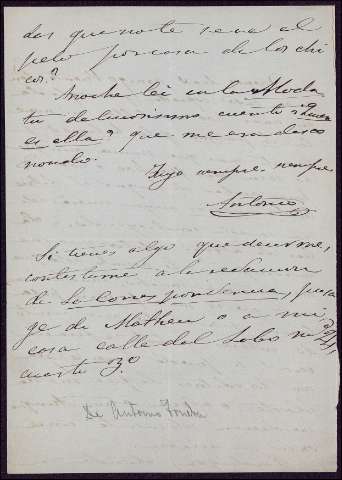 das que no te sera el
peso por casa de los chi
cos?
Anoche lei en la Moda
tu delicioso cuento ¿Quien
es ella? que me era desco
nocido.
Tuyo siempre, siempre
Antonio
Si tienes algo que decirme,
contestame a la redaccion
de La Correspondencia, pasa
ge de Matheu o a mi
casa calle del Lobo nº 21,
cuarto 3º
De Antonio